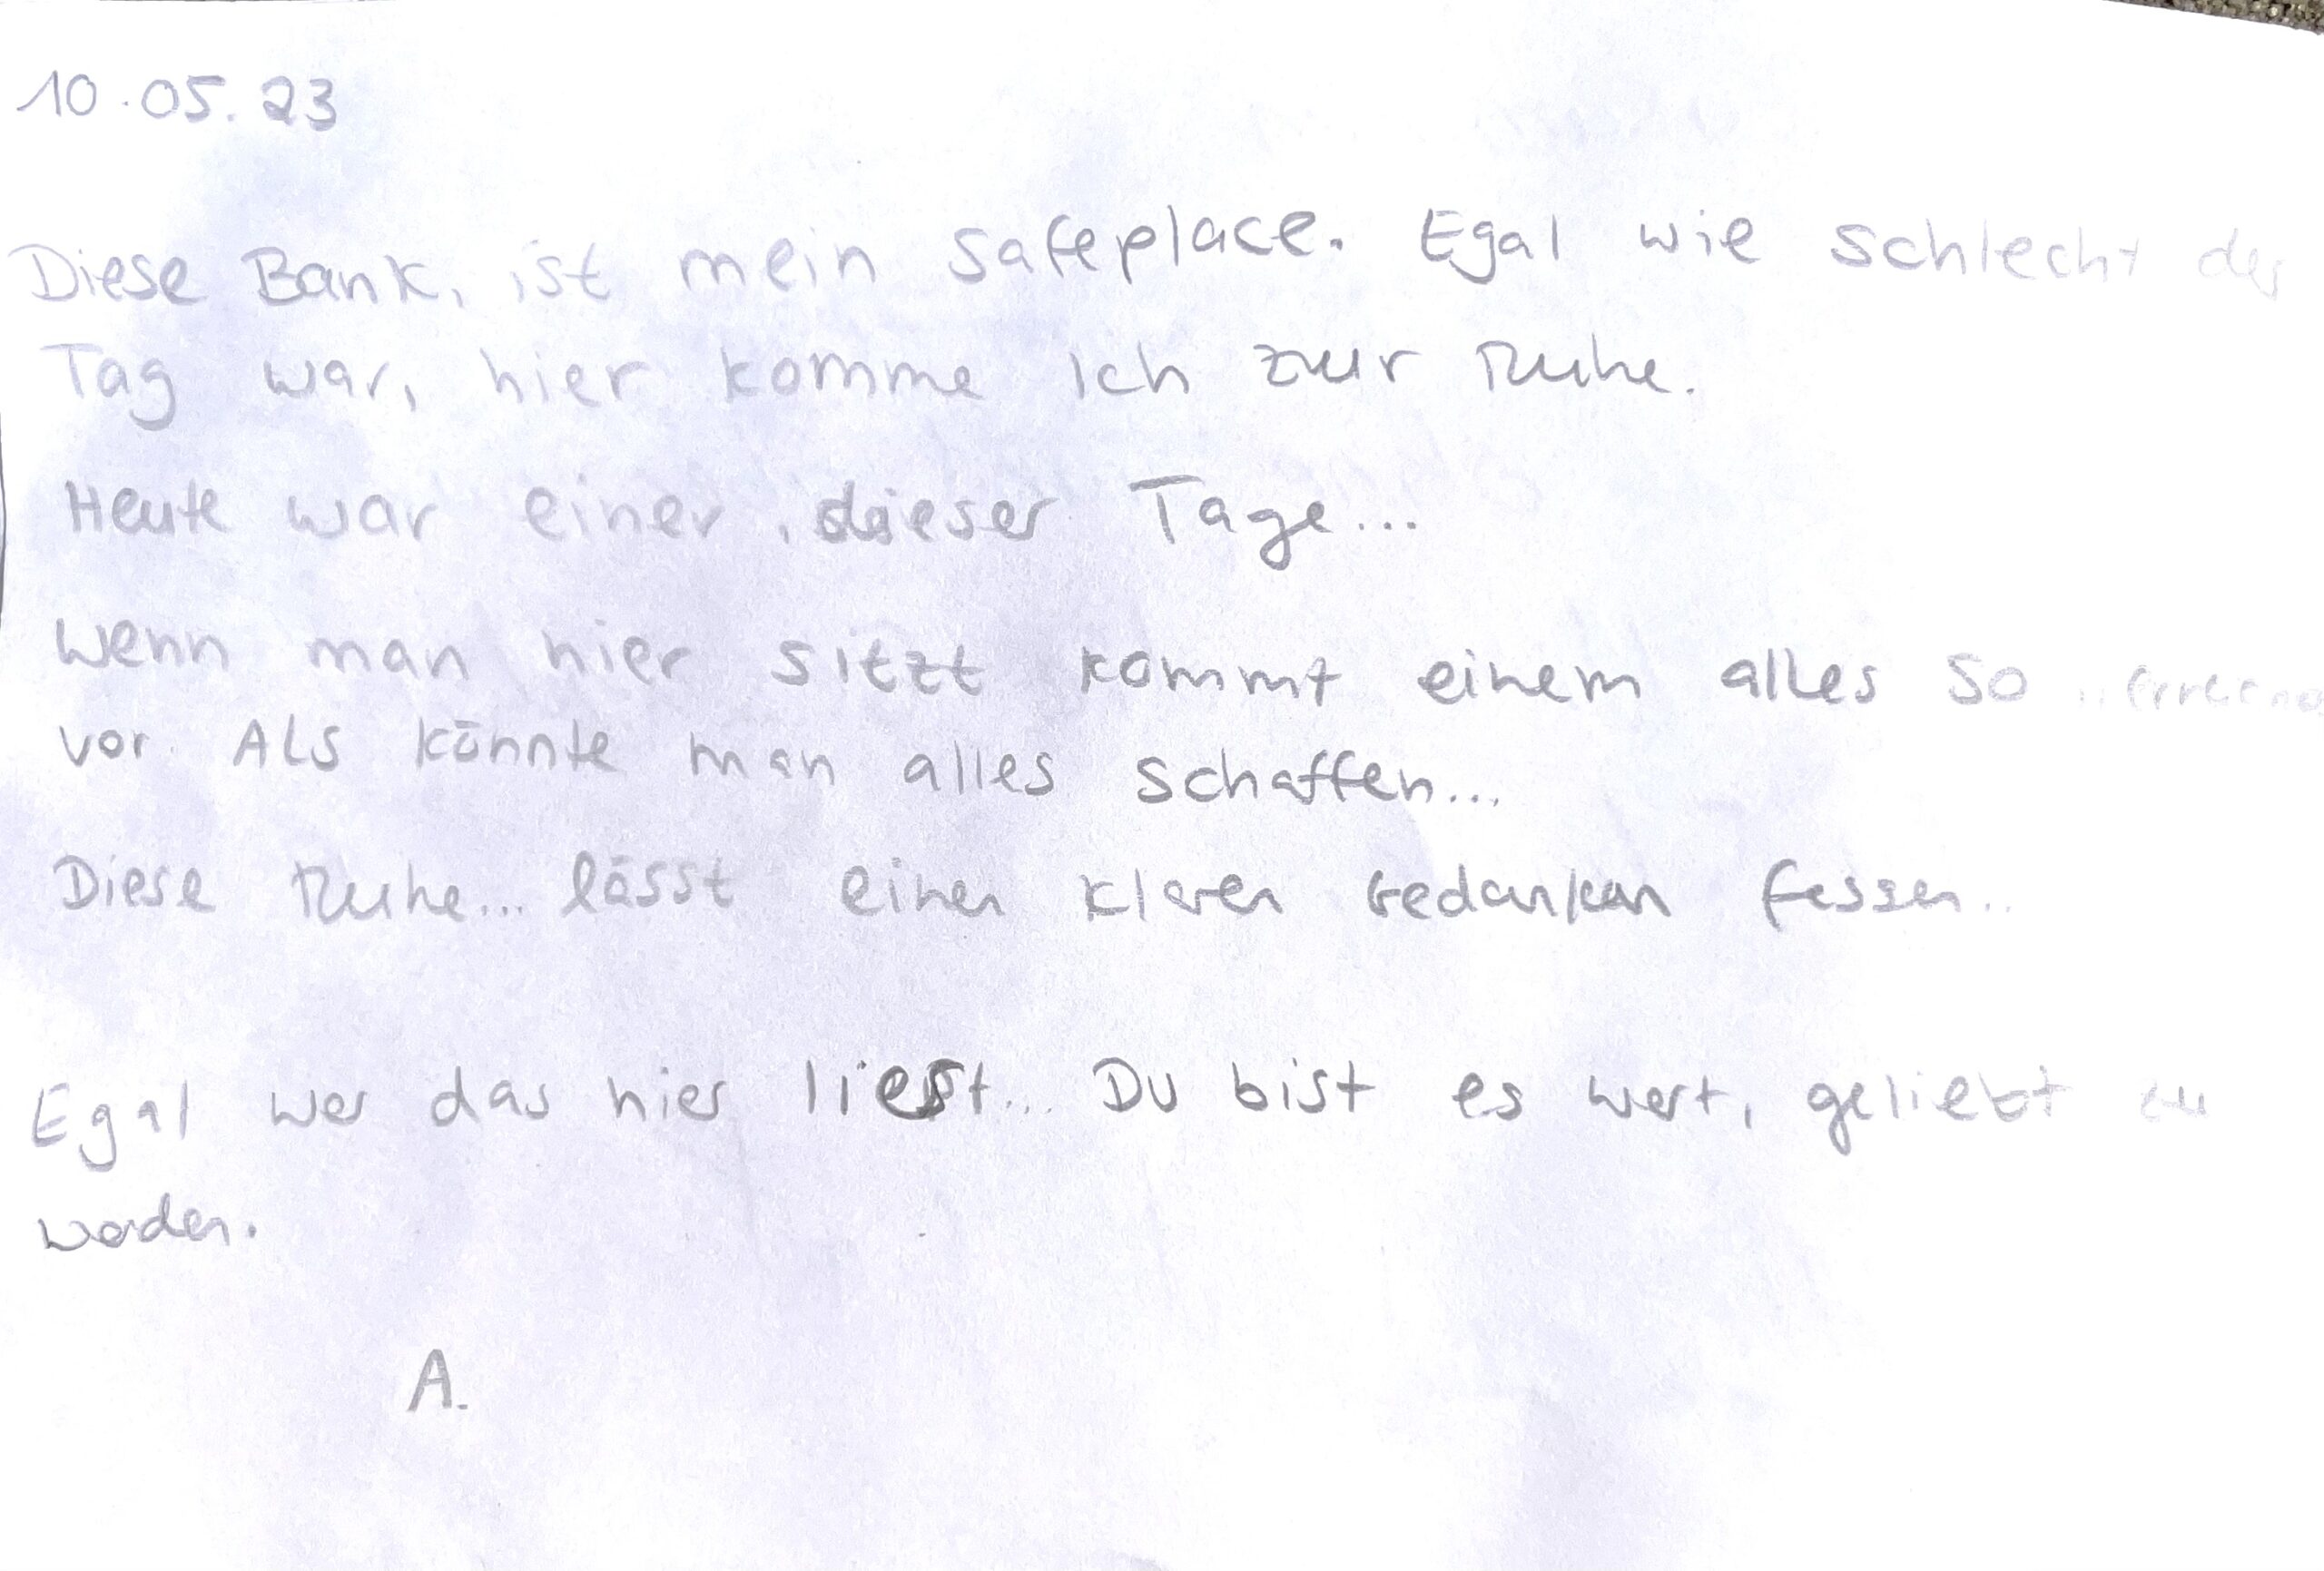 10.05.23
Diese Bank, ist mein safeplace. Egal wie schlecht der
Tag war, hier komme ich zur Ruhe.
Heute war einer dieser Tage...
Wenn man hier sitzt kommt einem alles so
vor. Als könnte man alles schaffen...
Diese Ruhe... lässt einen klaren Gedanken fassen..
Egal wer das hier liest... Du bist es wert, geliebt zu
werden.
A.